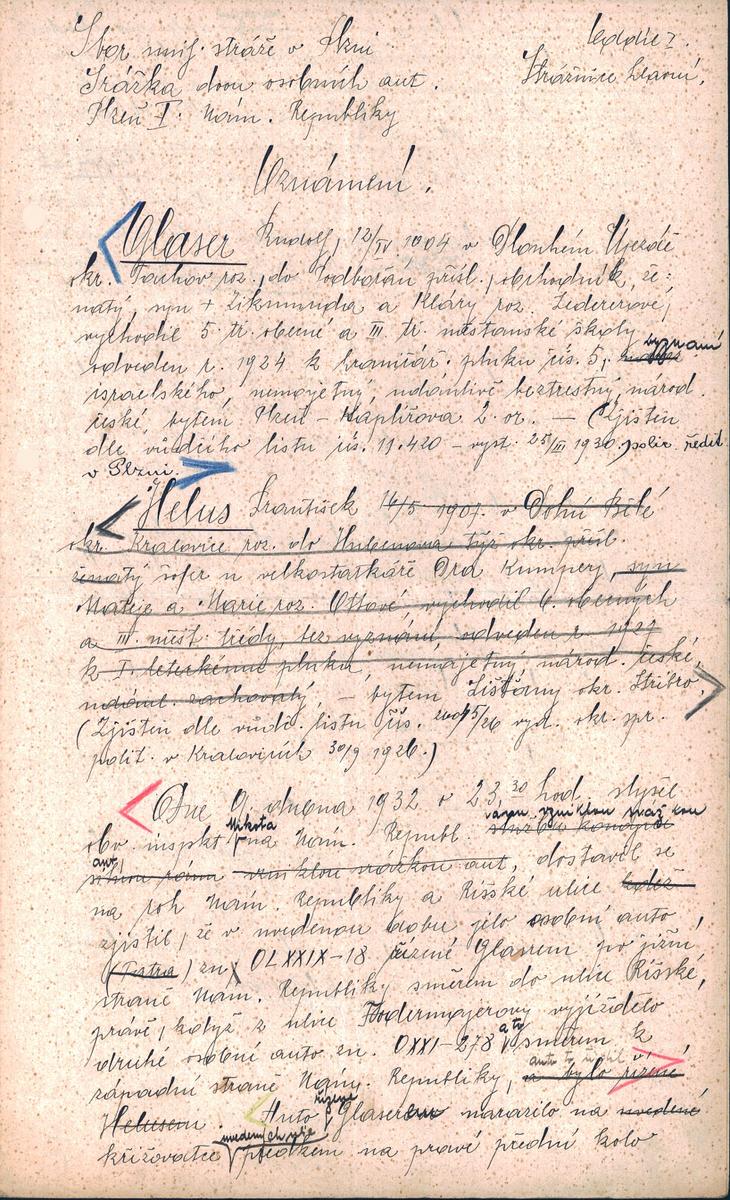 Sbor unif. stráže v Plzni
Srážka dvou osobních aut.
Strážnice hlavní.
Plzeň I. Nám. Republiky
Oznámení.
Glaser Rudolf, 12/IV 1904 v Dlouhém Újezdě
okr. Tachov roz., do Podbořan přísl., obchodník, že:
natý, syn + Zikmunda a Kláry roz. Ledererové,
vychodil 5. tř. obecné a III tř. měšťanské školy
odveden r. 1924 k hraničář. pluku čís. 5, vyznání
israelského, nemajetný, udanlivě beztrestný, národ
české, bytem Plzeň - Kaplířova 2. or. — (Zjištěn
dle vůdčího listu čís. 11.420 - vyst. 25/III 1930, polic. ředit
v Plzni.
Helus František 14/5 1901. v Dolní Bělé
okr. Kralovice roz. do Hubenova týž okr. přísl.
ženatý šofer u velkostatkáře Dra Kumpery, syn
Matěje a Marie roz. Ottové, vychodil 6. obecných
a III. měšť. třídy, bez vyznání, odveden r. 1921
k I. leteckému pluku, nemajetný, národ. české,
udánl. zachovalý, - bytem Líšťany okr. Stříbro.
(Zjištěn dle vůdč. listu čís. 2045/26 vyd. okr. spr.
polit. v Kralovicích 30/9 1926.)
Dne 9. dubna 1932 v 23,30 hod. slyšel
ránu vzniklou srážkou
obv. inspkt Mikota na Nám. Republ.
aut, vzniklou srážkou aut, dostavil se
na roh Nám. Republiky a Říšské ulice kdež
zjistil, že v uvedenou dobu jelo osobní auto
(Tatra) zn. OLXXIX-18 řízené Glasrem po jižní
straně Nám. Republiky směrem do ulice Říšské,
právě, když z ulice Fodermayerovy vyjíždělo
druhé osobní auto zn. OXXI-278 a to směrem k
západní straně Nám. Republiky, a bylo řízené
Helusem. Auto řízené Glaserem narazilo na uvedené
křižovatce předkem na pravé přední kolo